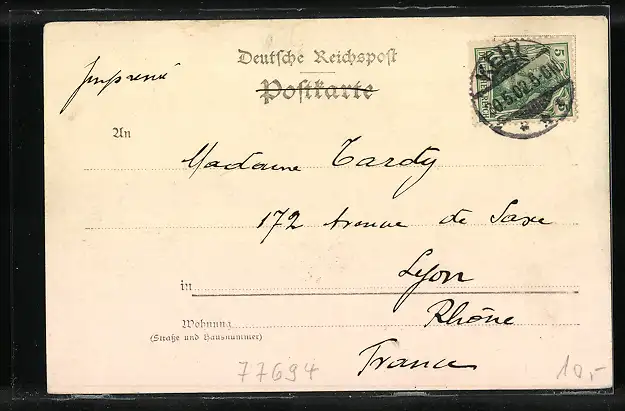 Deutsche Reichspost
Imprimé
Postkarte
KEHL
5
An
Madame Tardy
172 Avenue de Saxe
in
Lyon
Rhône
Wohnung
(Straße und Hausnummer)
France
77694
10,-